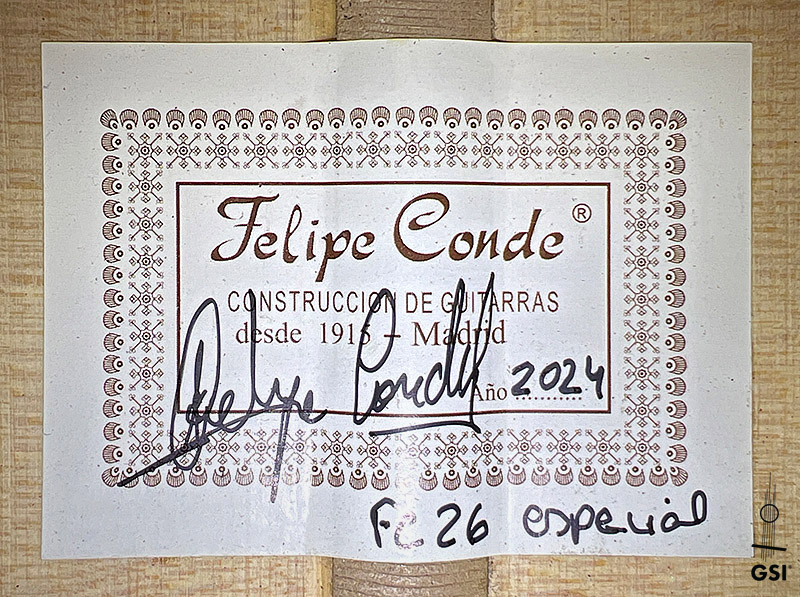 Felipe Conde ®
CONSTRUCCION DE GUITARRAS
desde 1915 – Madrid
Felipe Conde
Año 2024
FC 26 especial
GSI